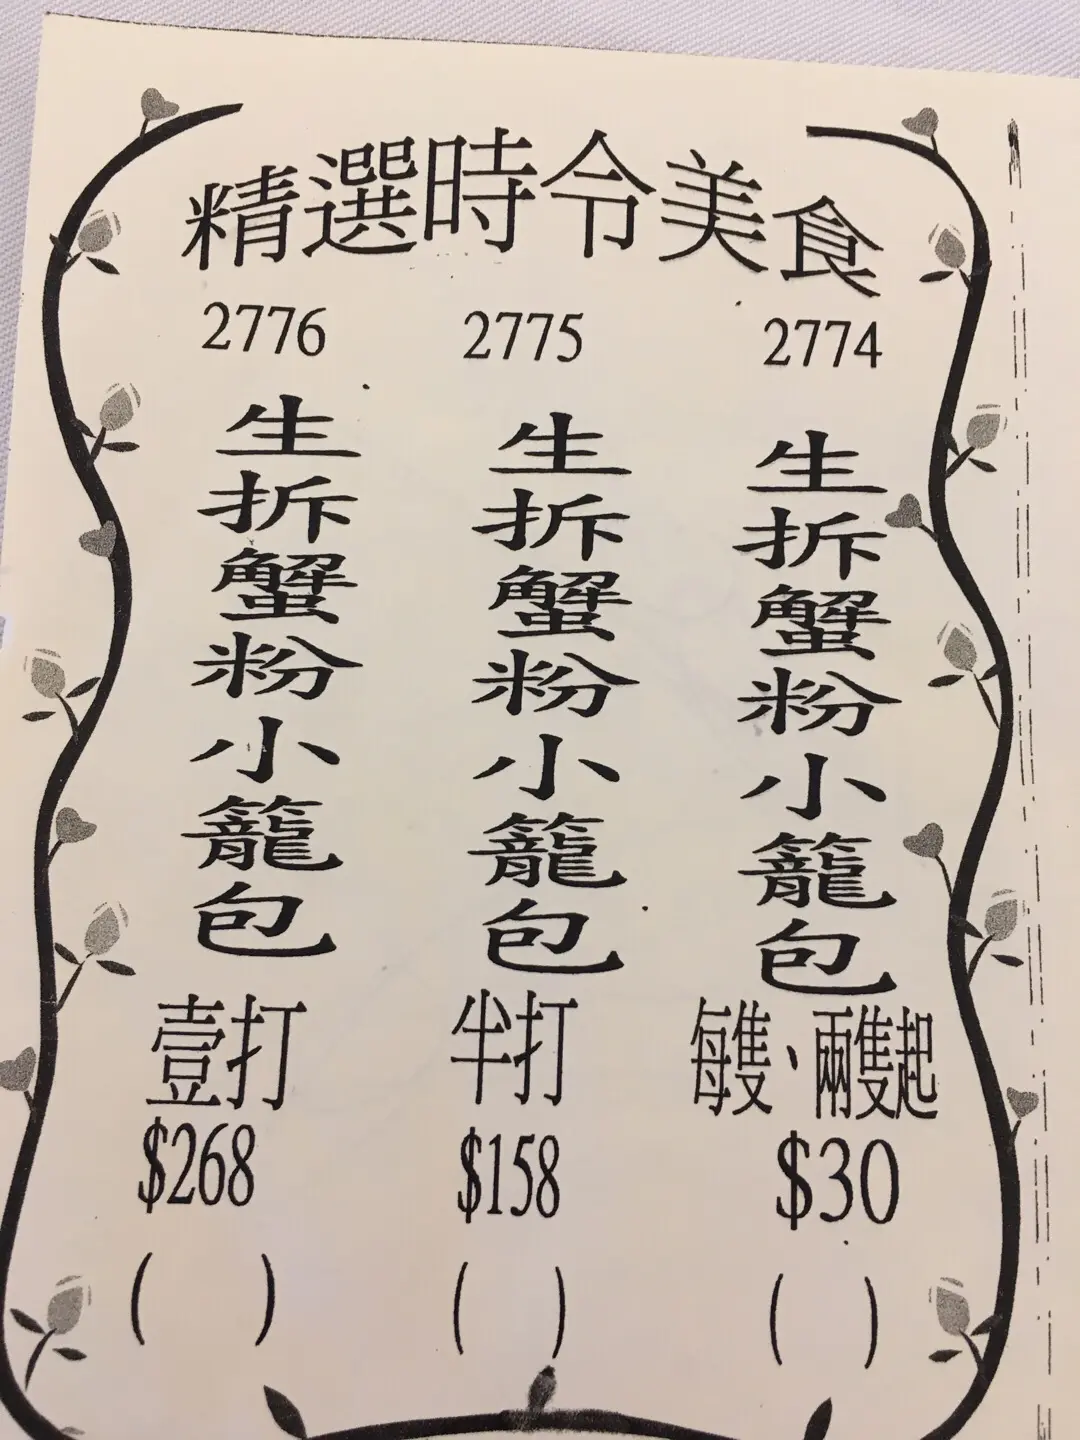 精選時令美食
2774
生拆蟹粉小籠包
每隻、兩隻起
$30
( )
2775
生拆蟹粉小籠包
半打
$158
( )
2776
生拆蟹粉小籠包
壹打
$268
( )